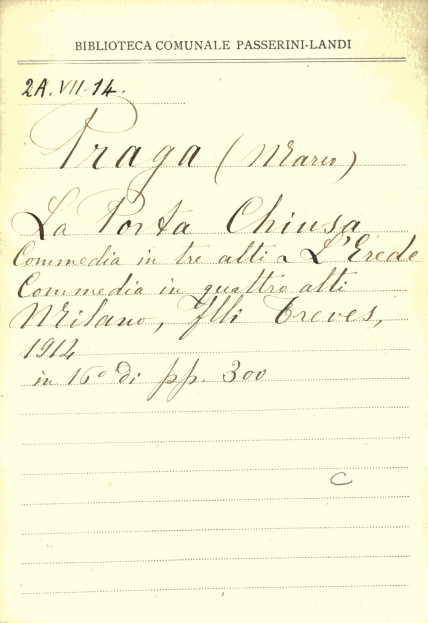 BIBLIOTECA COMUNALE PASSERINI-LANDI
2A.VII.14.
Praga (Marco)
La Porta Chiusa
Commedia in tre atti - L'Erede
Commedia in quattro atti
Milano, Flli Treves,
1912
in 16° di pp. 300
C